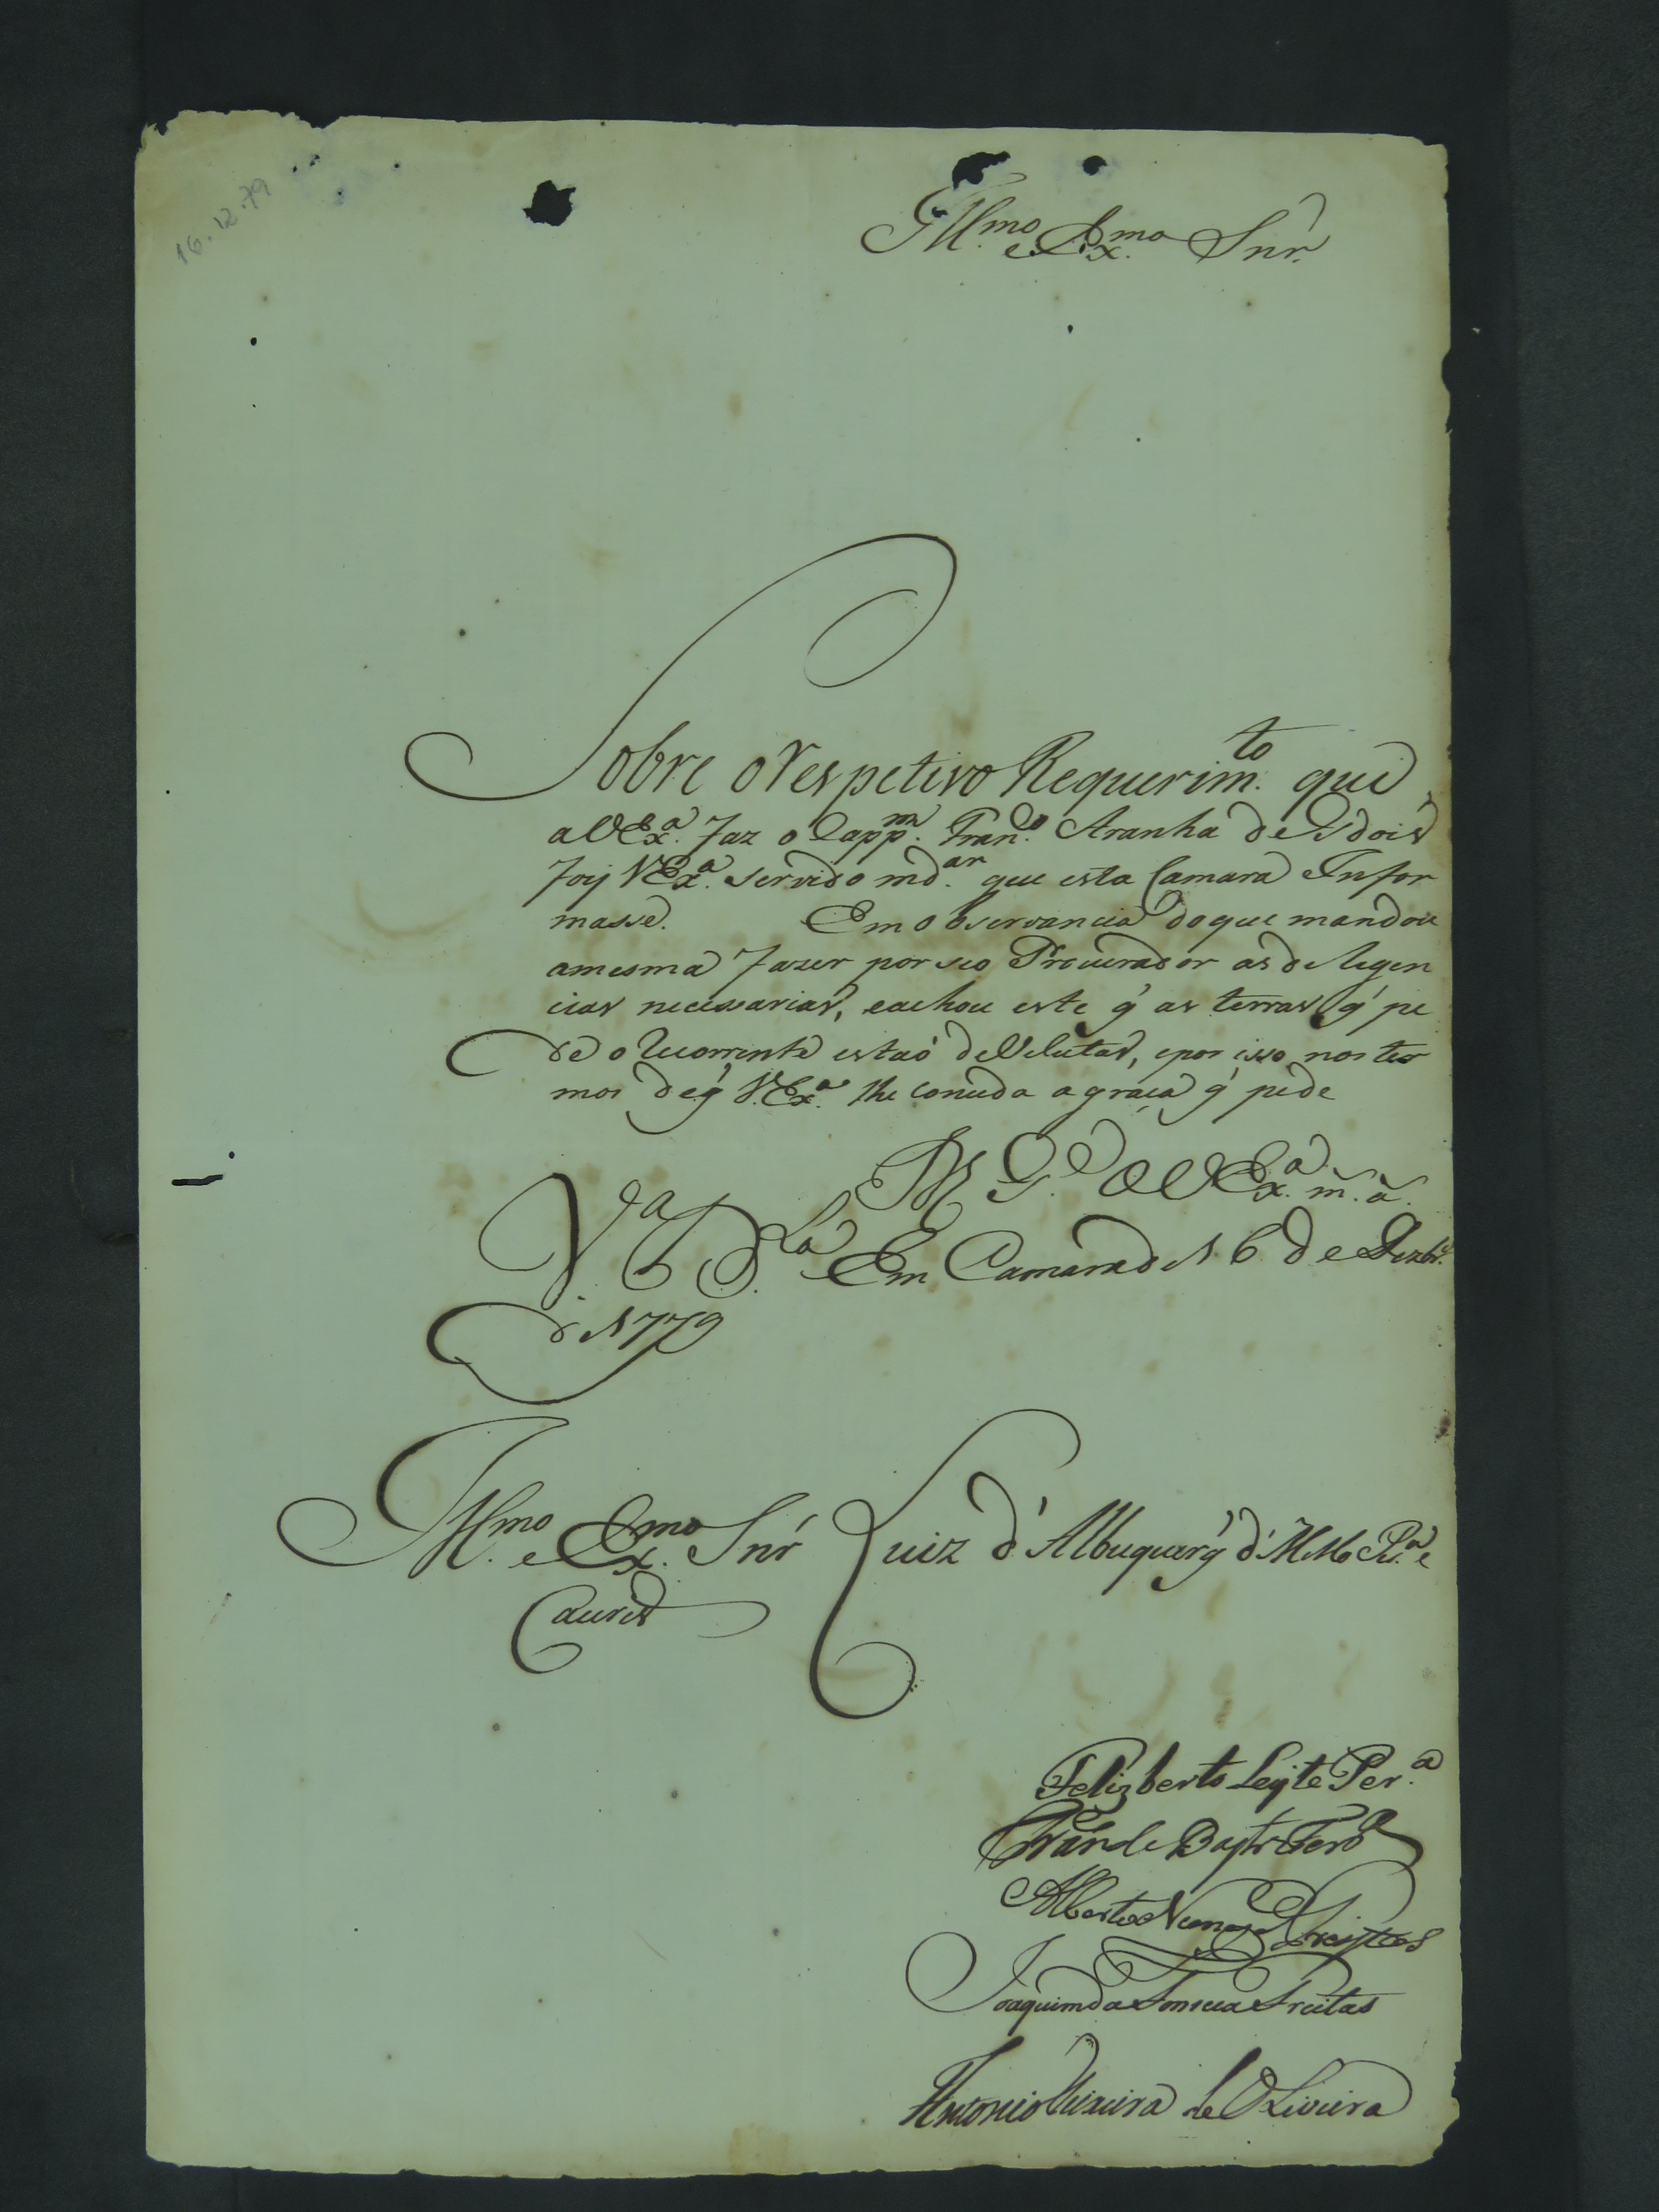 16.12.79
Ill.mo e Ex.mo Snr.
Sobre o Respetivo Requerim.to que
a V Ex.a faz o Capp.m Fran.co Aranha de Gódois
foy V Ex.a servido md.ar que esta Camara Infor
masse. Em observancia do que mandou
amesma fazer por seo Procurador as deligen
cias necessarias, eachou este q̃ as terras q̃ pe
de o Recorrente estaó deVelutas, epor isso nos ter
mos deq̃ V. Ex.a lhe conceda a graça q̃ pede
D.s G.e a V Ex.a m. a.
V.a B.la Em Camara de 16 de Dezbr.o
de 1779
Ill.mo e Ex.mo Snr Luiz d' Albuquerq̃ d' M.llo P.ra e
Caceres
Felizberto Leyte Per.a
Alberto Nunes Freytas
Joaquim da Fonseca Freitas
Antonio Teixeira de Oliveira